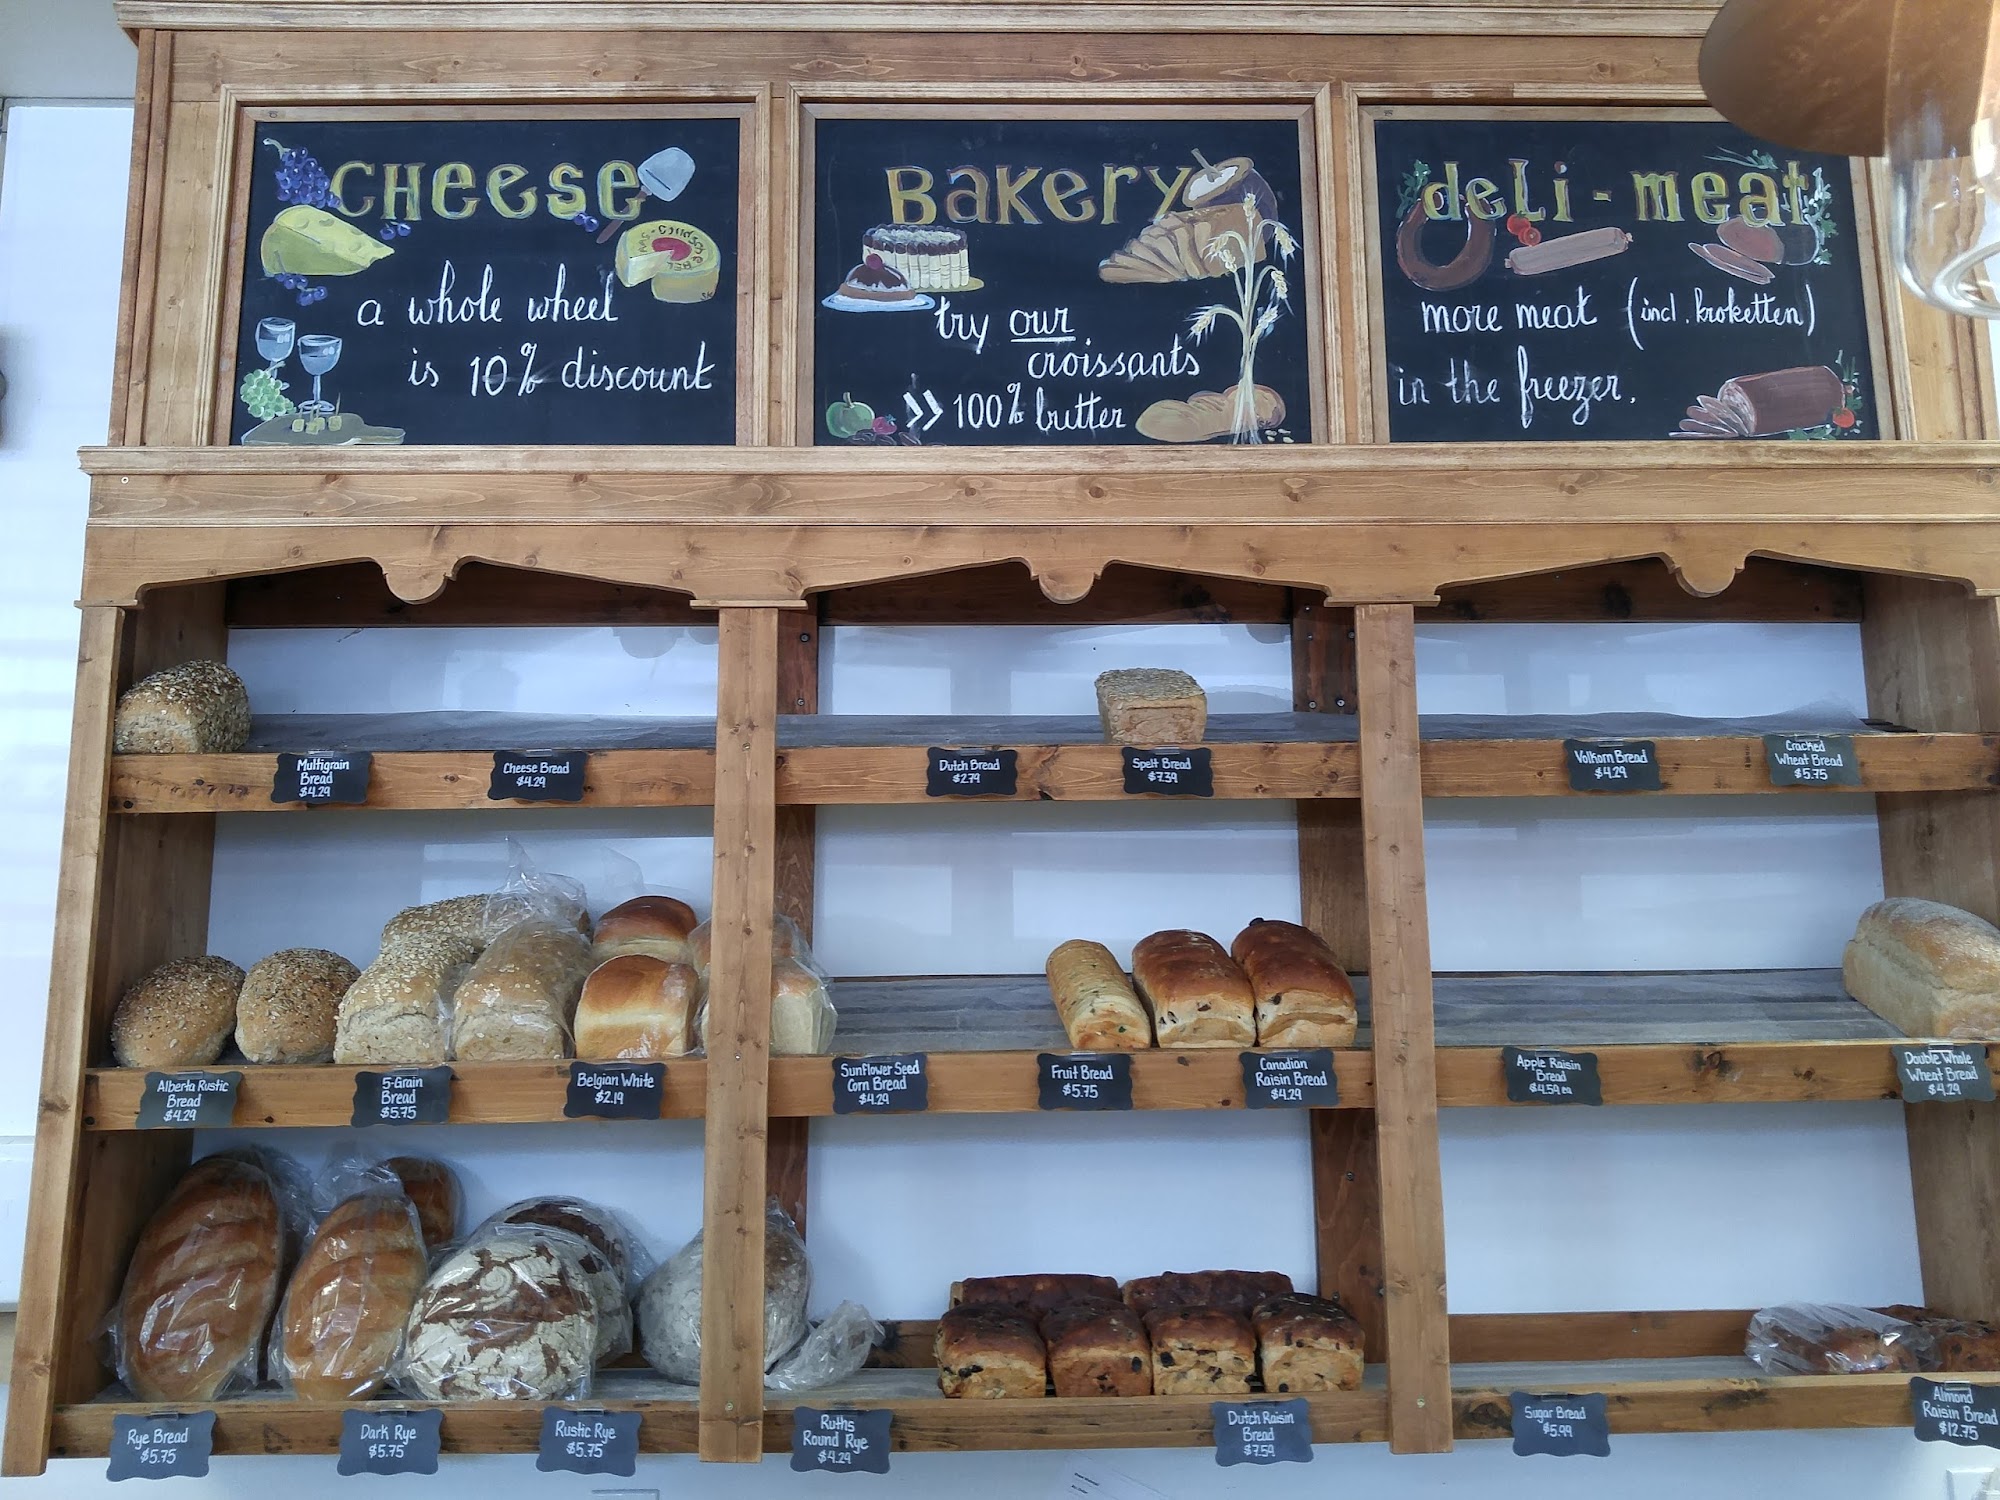 CHeeSe
a whole wheel
is 10% discount
BAKery
try our
croissants
>> 100% butter
deLi-meat
more meat (incl. kroketten)
in the freezer.
Multigrain
Bread
$4.29
Cheese Bread
$4.29
Dutch Bread
$2.79
Spelt Bread
$7.39
Volkorn Bread
$4.29
Cracked
Wheat Bread
$5.75
Alberta Rustic
Bread
$4.29
5-Grain
Bread
$5.75
Belgian White
$2.19
Sunflower Seed
Corn Bread
$4.29
Fruit Bread
$5.75
Canadian
Raisin Bread
$4.29
Apple Raisin
Bread
$4.59 ea
Double Whole
Wheat Bread
$4.29
Rye Bread
$5.75
Dark Rye
$5.75
Rustic Rye
$5.75
Ruths
Round Rye
$4.29
Dutch Raisin
Bread
$7.59
Sugar Bread
$5.99
Almond
Raisin Bread
$12.75